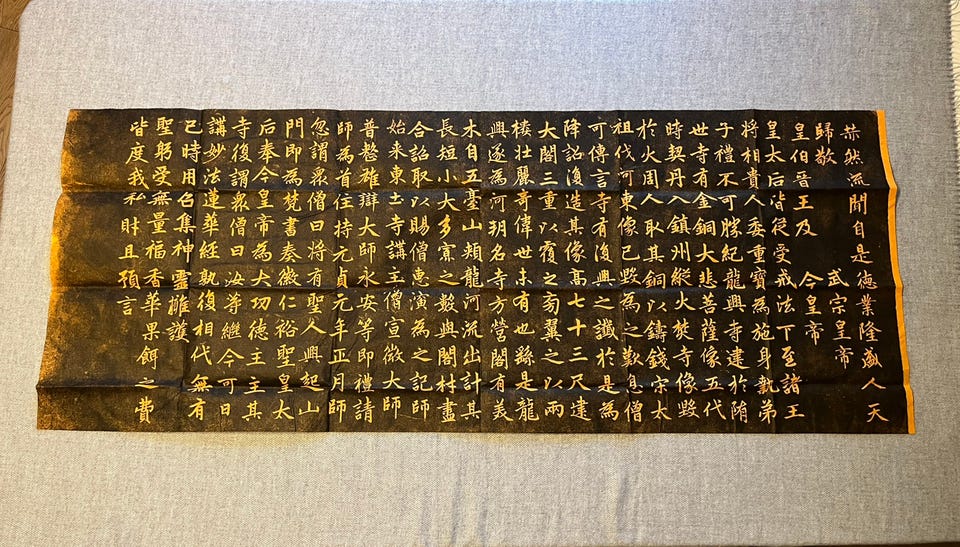 赫然流聞自是德業隆盛人天
歸敬　武宗皇帝
皇伯晉王及　今皇帝
皇太后皆從受戒法下至諸王
將相貴人委重寶為施身執弟
子禮不可勝紀龍興寺建於隋
世寺有金銅大悲菩薩像五代
時契丹入鎮州縱火焚寺像毀
於火周人取其銅以鑄錢宋太
祖伐河東像已毀為之歎息僧
可傳言寺有復興之讖於是為
降詔復造其像高七十三尺建
大閣三重以覆之旁翼之以兩
樓壯麗奇偉世未有也繇是龍
興遂為河朔名寺方營閣有美
木自五臺山頰龍河流出計其
長短小大多寡之數與閣材盡
合詔取以賜僧惠演為之記師
始来東土寺講主僧宣微大師
普整雄辯大師永安等即禮請
師為首住持元貞元年正月師
忽謂眾僧曰將有聖人興起山
門即為梵書奏徽仁裕聖皇太
后奉今皇帝為大功德主主其
寺復謂眾僧曰汝等繼今可日
講妙法蓮華經孰復相代無有
已時用召集神靈擁護
聖躬受無量福香華果餌之費
皆度我私財且預言